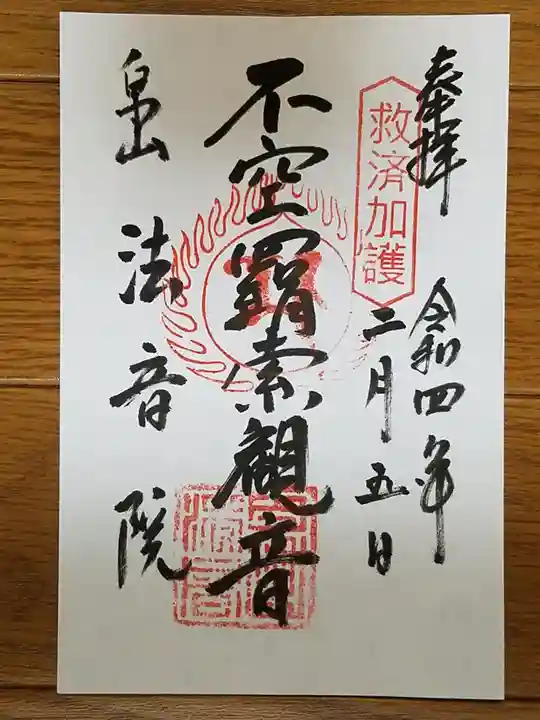 奉拝
令和四年
二月五日
救済加護
不空羂索観音
法音院